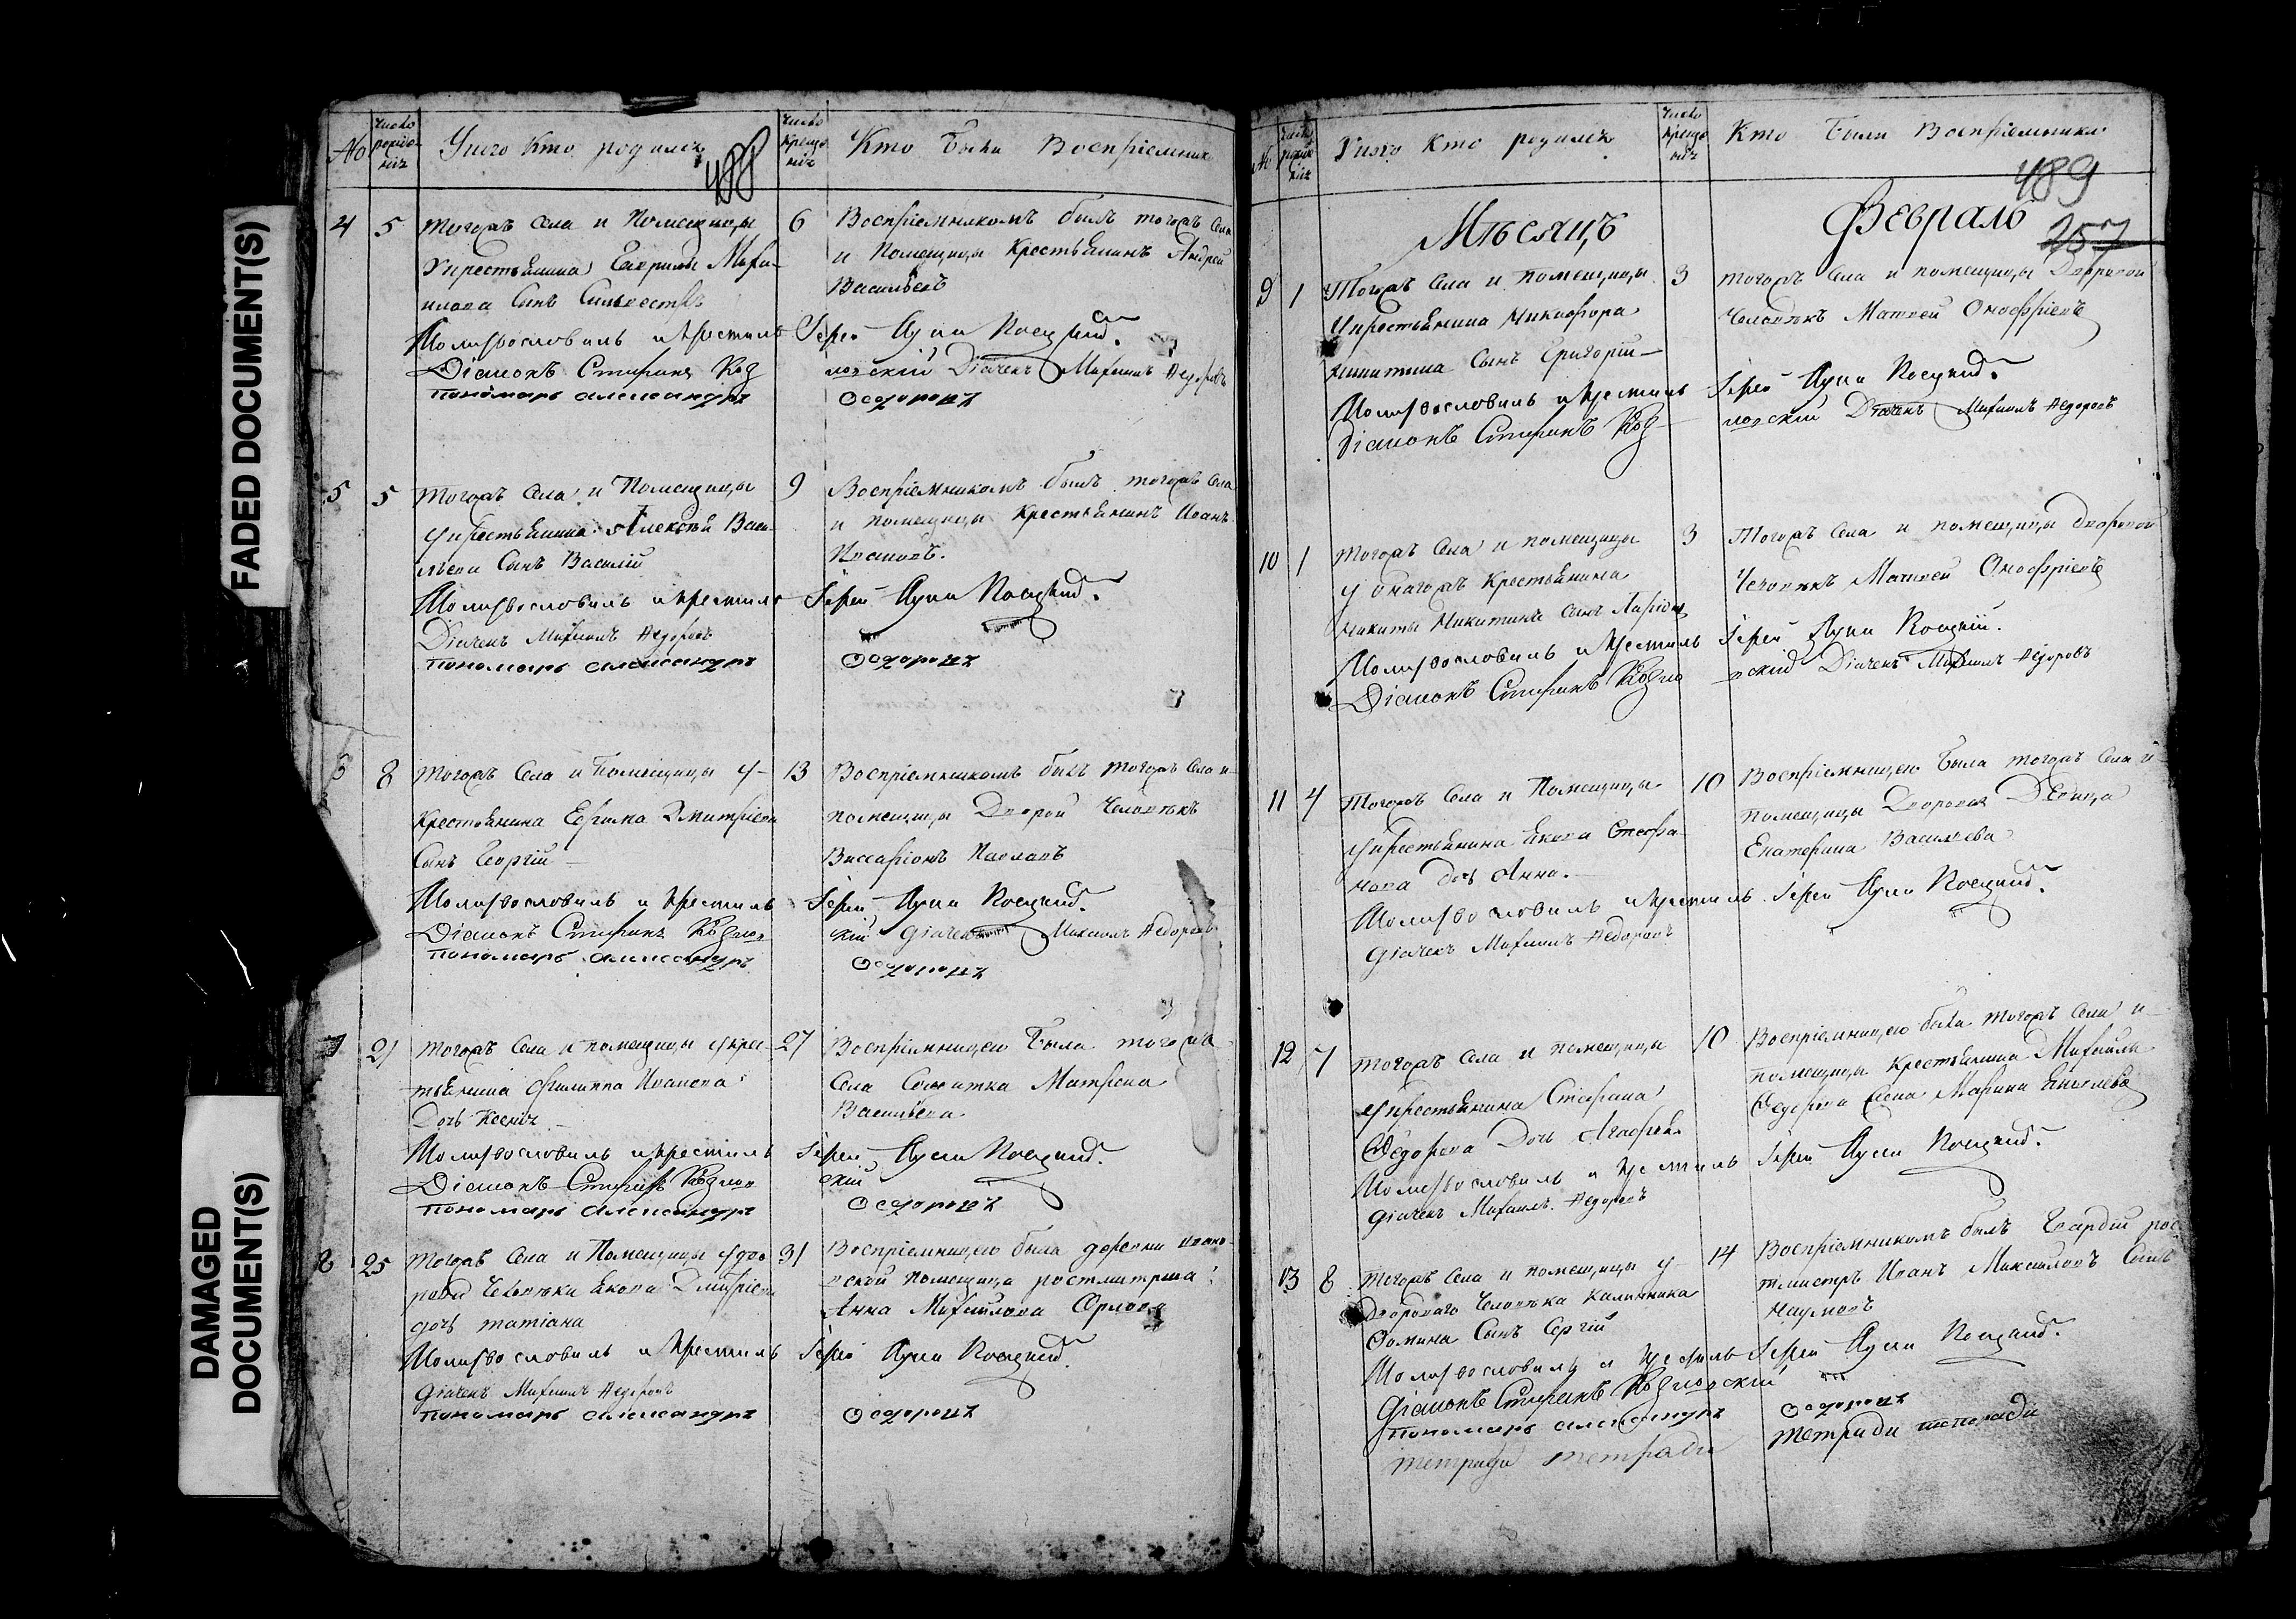 FADED DOCUMENT(S)
DAMAGED
DOCUMENT(S)
№
Число
рожде
нія
У кого кто родился
488
Число
креще
нія
Кто были Воспріемник
4 5
тогожъ села и Помещицы
у крестьянина Гаврилы Михаи-
лова Сынъ Сильвестръ
6
Воспріемникомъ былъ тогожъ села
и Помещицы Крестьянинъ Андрей
Васильевъ
Молитвословилъ и крестилъ Іерей Лука
Діаконъ Стефанъ Коз
ловскій Дьячекъ Михаилъ Федоровъ
пономарь александръ
Ѳедоровъ
5 5
тогожъ села и Помещицы
у крестьянина Алексѣя Васи-
льева Сынъ Василій
9
Воспріемникомъ былъ тогожъ села
и помещицы Крестьянинъ Иванъ
Ивановъ.
Молитвословилъ и крестилъ Іерей Лука
Діачекъ Михаилъ Федоровъ
пономарь александръ
Ѳедоровъ
6 8
тогожъ села и Помещицы у-
крестьянина Ефима Дмитріева
Сынъ Георгій
13
Воспріемникомъ былъ тогожъ села и
помещицы Дворой Человѣкъ
Виссаріонъ Павловъ
Молитвословилъ и крестилъ Іерей Лука
Діаконъ Стефанъ Козловс
кій діачекъ Михаилъ Федоровъ
пономарь александръ
Ѳедоровъ
7 21
тогожъ села и помещицы у крес-
тьянина Филиппа Иванова
Дочь Ксенія
27
Воспріемницею была тогожъ
села Солдатка Матрона
Васильева
Молитвословилъ и крестилъ Іерей Лука
Діаконъ Стефанъ Козлов
скій
пономарь александръ
Ѳедоровъ
8 25
тогожъ села и Помещицы у дво
рова Человѣка Якова Дмитріева
дочь татіана
31
Воспріемницею была деревни Ивано-
вской помещица ротмистрша
Анна Михайлова Орлова
Молитвословилъ и крестилъ Іерей Лука
діачекъ Михаилъ Федоровъ
пономарь александръ
Ѳедоровъ
№
Число
рожде
нія
У кого кто родился
Число
креще
нія
Кто были Воспріемники
489
Мѣсяцъ Февраль
257
9 1
Тогожъ села и помещицы
у крестьянина Никифора
Никитина Сынъ Григорій
3
тогожъ села и помещицы Дворовой
человѣкъ Матвей Онофріевъ
Молитвословилъ и крестилъ Іерей Лука
Діаконъ Стефанъ Коз
ловскій Дьячекъ Михаилъ Федоровъ
10 1
тогожъ села и помещицы
у онагожъ Крестьянина
Никиты Никитина сынъ Ларіонъ
3
Тогожъ села и помещицы дворовой
Человѣкъ Матвей Онофріевъ
Молитвословилъ и крестилъ Іерей Лука
Діаконъ Стефанъ Козло
вскій Діачекъ Михаилъ Федоровъ
11 4
Тогожъ села и Помещицы
у крестьянина Якова Стефа-
нова дочь Анна.
10
Воспріемницею была тогожъ села и
помещицы Дворовая Девица
Екатерина Васильева
Молитвословилъ и крестилъ Іерей Лука
діачекъ Михаилъ Федоровъ
12 7
тогожъ села и помещицы
у крестьянина Стефана
Ѳедорова Дочь Агафья
10
Воспріемницею была тогожъ села и
помещицы крестьянина Михайла
Ѳедорова жена Марина
Молитвословилъ и крестилъ Іерей Лука
діачекъ Михаилъ Федоровъ
13 8
тогожъ села и помещицы у-
Двороваго Человѣка Калинника
Ѳомина Сынъ Сергій
14
Воспріемникомъ былъ Гвардіи рот
тмистръ Иванъ Михайловъ Сынъ
Наумовъ
Молитвословилъ и крестилъ Іерей Лука
діаконъ Стефанъ Козловскій
пономарь александръ
Ѳедоровъ
тетради тетради тетради